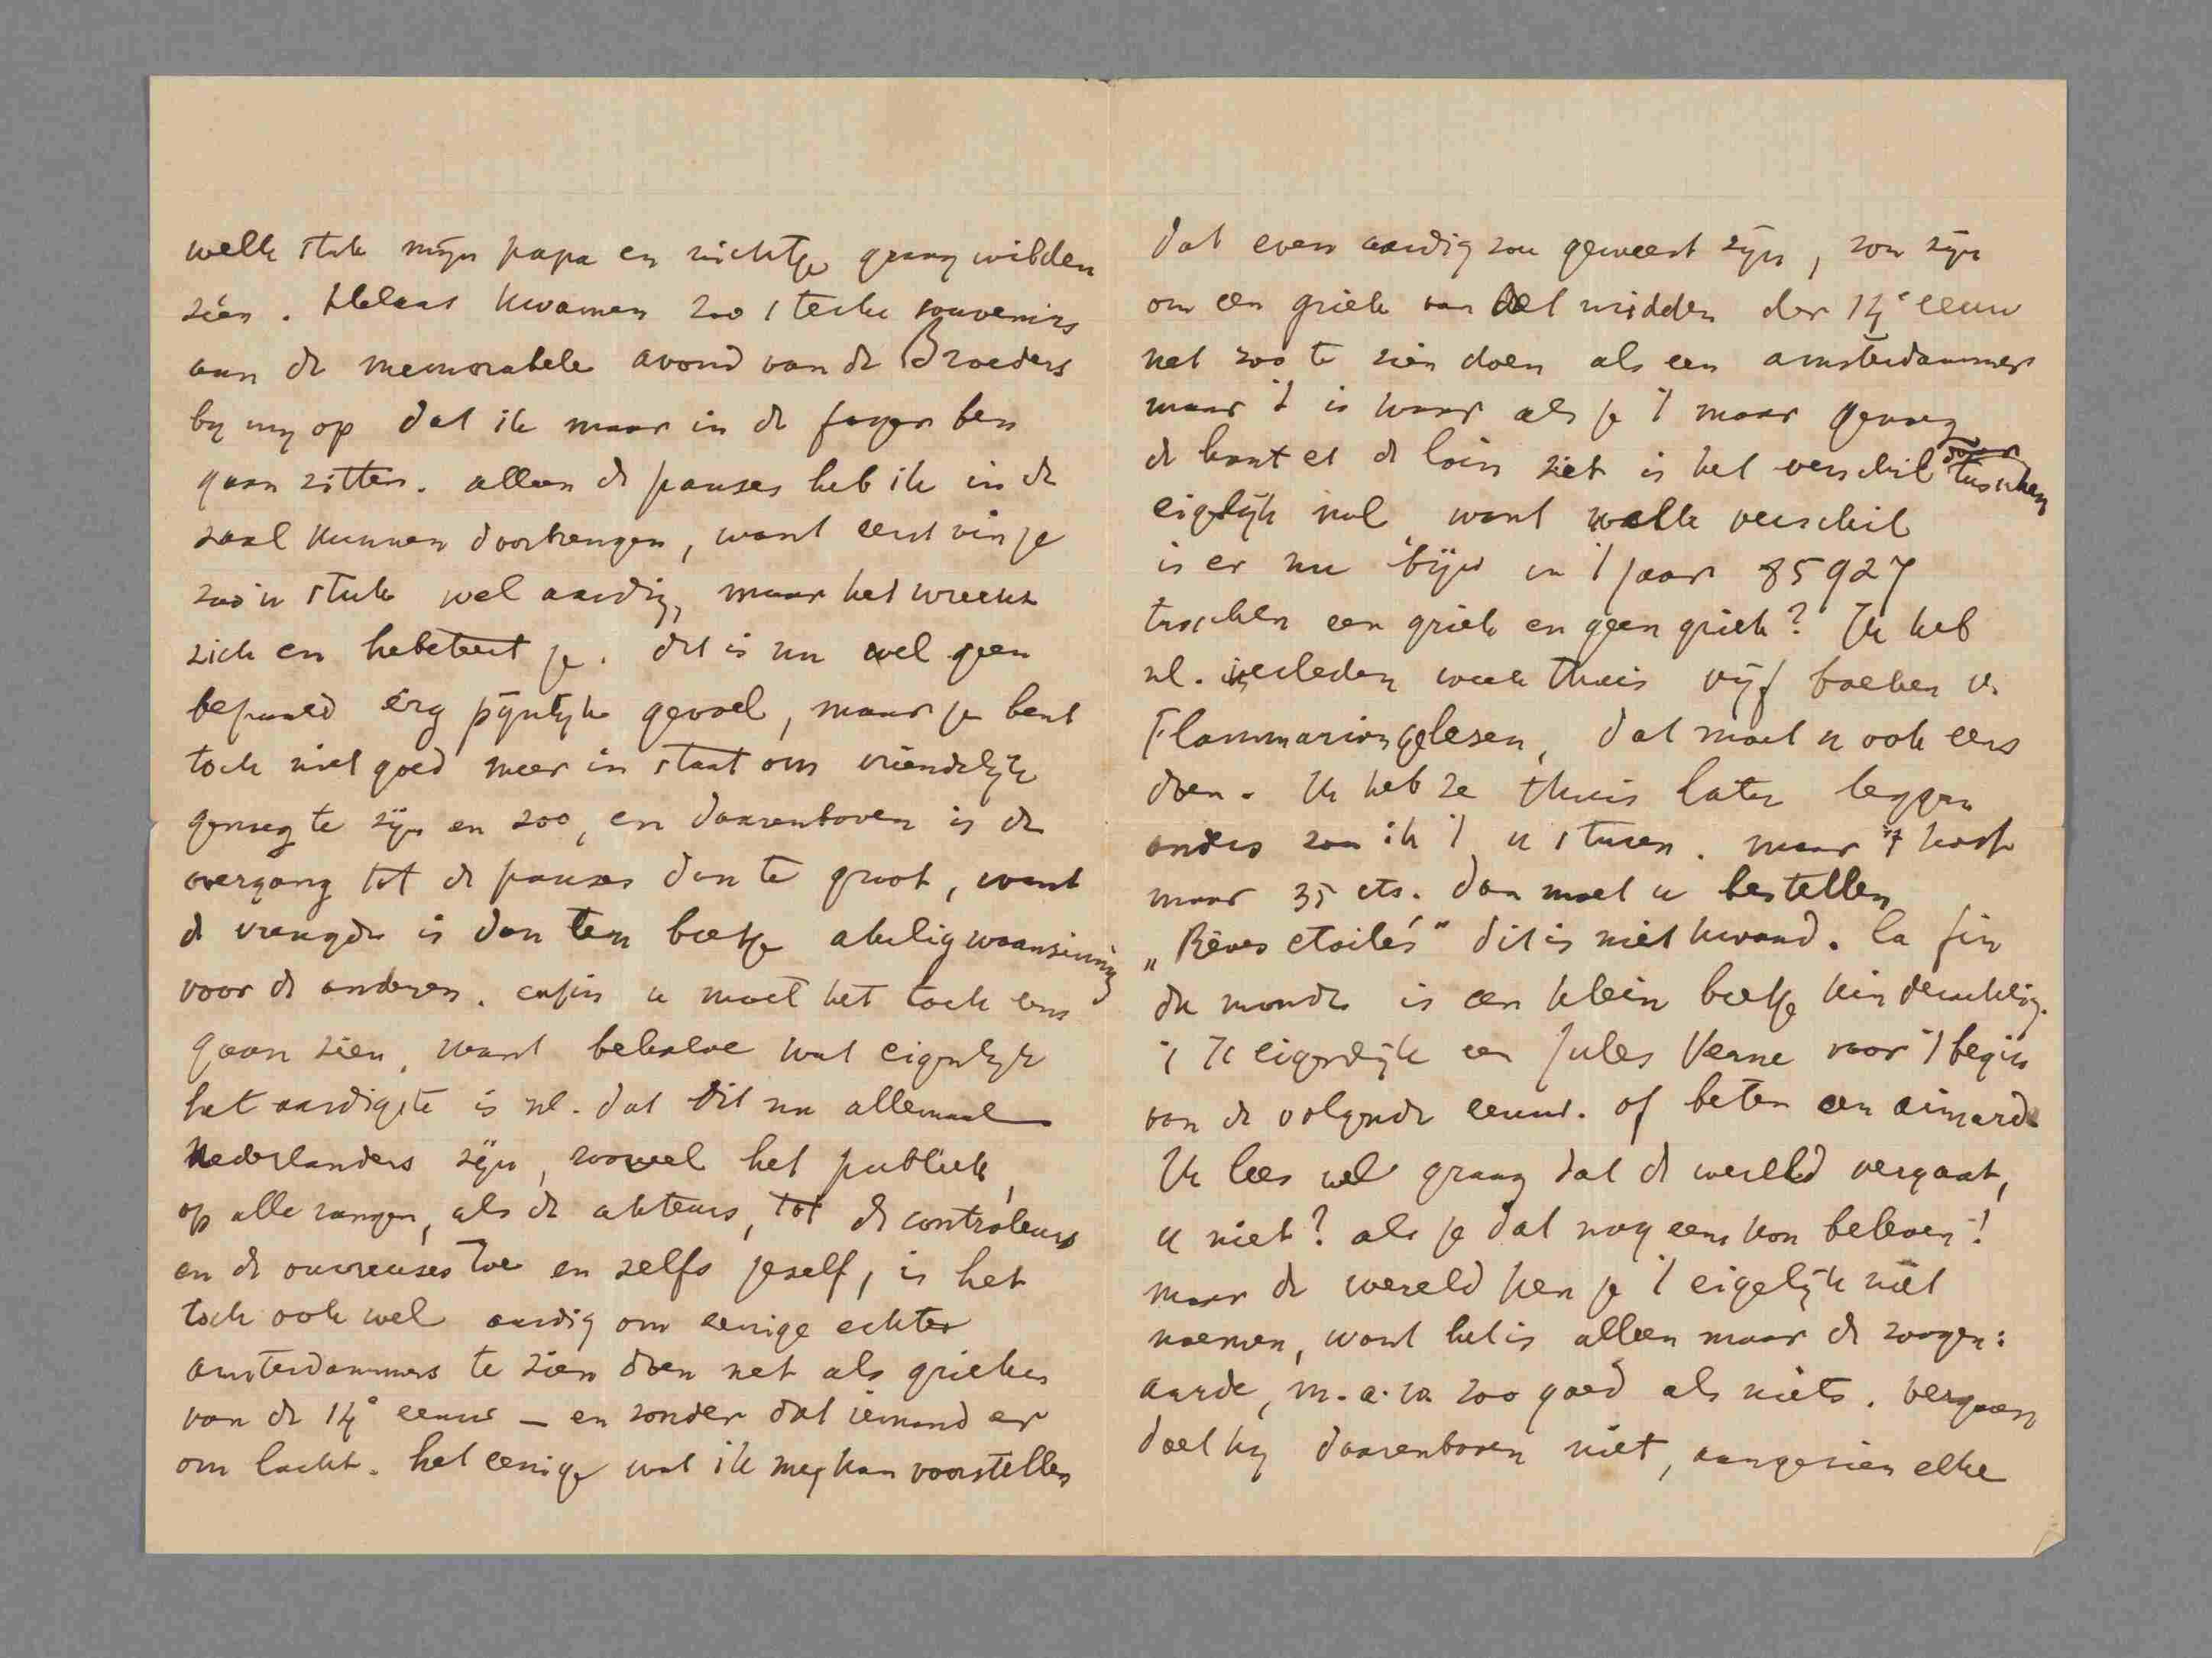 welk stuk mijn papa en nichtje graag wilden
zien. Helaas kwamen zoo sterke souvenirs
aan de memorabele avond van de Broeders
by my op dat ik maar in de foyer ben
gaan zitten. alleen de pauzes heb ik in de
zaal kunnen doorbrengen, want eerst vin je
zoo'n stuk wel aardig, maar het wreekt
zich en hebeteert je. dit is nu wel geen
bepaald erg pijnlijk gevoel, maar je bent
toch niet goed meer in staat om vriendelijk
genoeg te zijn en zoo, en daarenboven is de
overgang tot de pauzes dan te groot, want
de vreugde is dan een beetje akelig waanzinnig
voor de anderen. enfin u moet het toch eens
gaan zien, want behalve wat eigenlijk
het aardigste is nl. dat dit nu allemaal
Nederlanders zijn, zoowel het publiek,
op alle rangen, als de akteurs, tot de contrôleurs
en de ouvreuses toe en zelfs jezelf, is het
toch ook wel aardig om eenige echte
amsterdammers te zien doen net als grieken
van de 14e eeuw – en zonder dat iemand er
om lacht. het eenige wat ik mey kan voorstellen
dat even aardig zou geweest zijn, zou zijn
om een griek van het midden der 14e eeuw
net zoo te zien doen als een amsterdammer
maar 't is waar als je 't maar genoeg
de haut et de loin ziet is het verschil tusschen
eigelijk nul want welk verschil
is er nu bijv in 't jaar 85927
tusschen een griek en geen griek? Ik heb
nl. verleden week thuis vijf boeken v.
Flammarion gelesen, dat moet u ook eens
doen. Ik heb ze thuis laten leggen
anders zou ik 't u sturen. maar 't kost
maar 35 cts. dan moet u bestellen
„Rêves etoilés" dit is niet kwaad. la fin
du monde is een klein beetje kinderachtig.
't Is eigendlijk een Jules Verne voor 't begin
van de volgende eeuw. of beter een aimard
Ik lees wel graag dat de wereld vergaat,
u niet? als je dat nog eens kon beleven!
maar de wereld ken je 't eigelijk niet
noemen, want het is alleen maar de zoogen:
aarde, m.a.w. zoo goed als niets. vergaan
doet hy daarenboven niet, aangezien elke